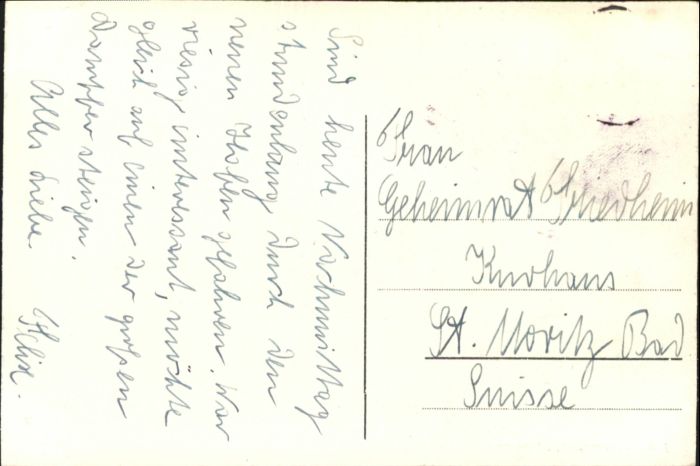 Sind heute Vormittag
stundenlang durch den
neuen Hafen gefahren. War
riesig interessant, möchte
gleich auf einen der großen
Dampfer steigen.
Alles Liebe. Felix.
Frau
Geheimrat Friedheim
Kurhaus
St. Moritz Bad
Suisse